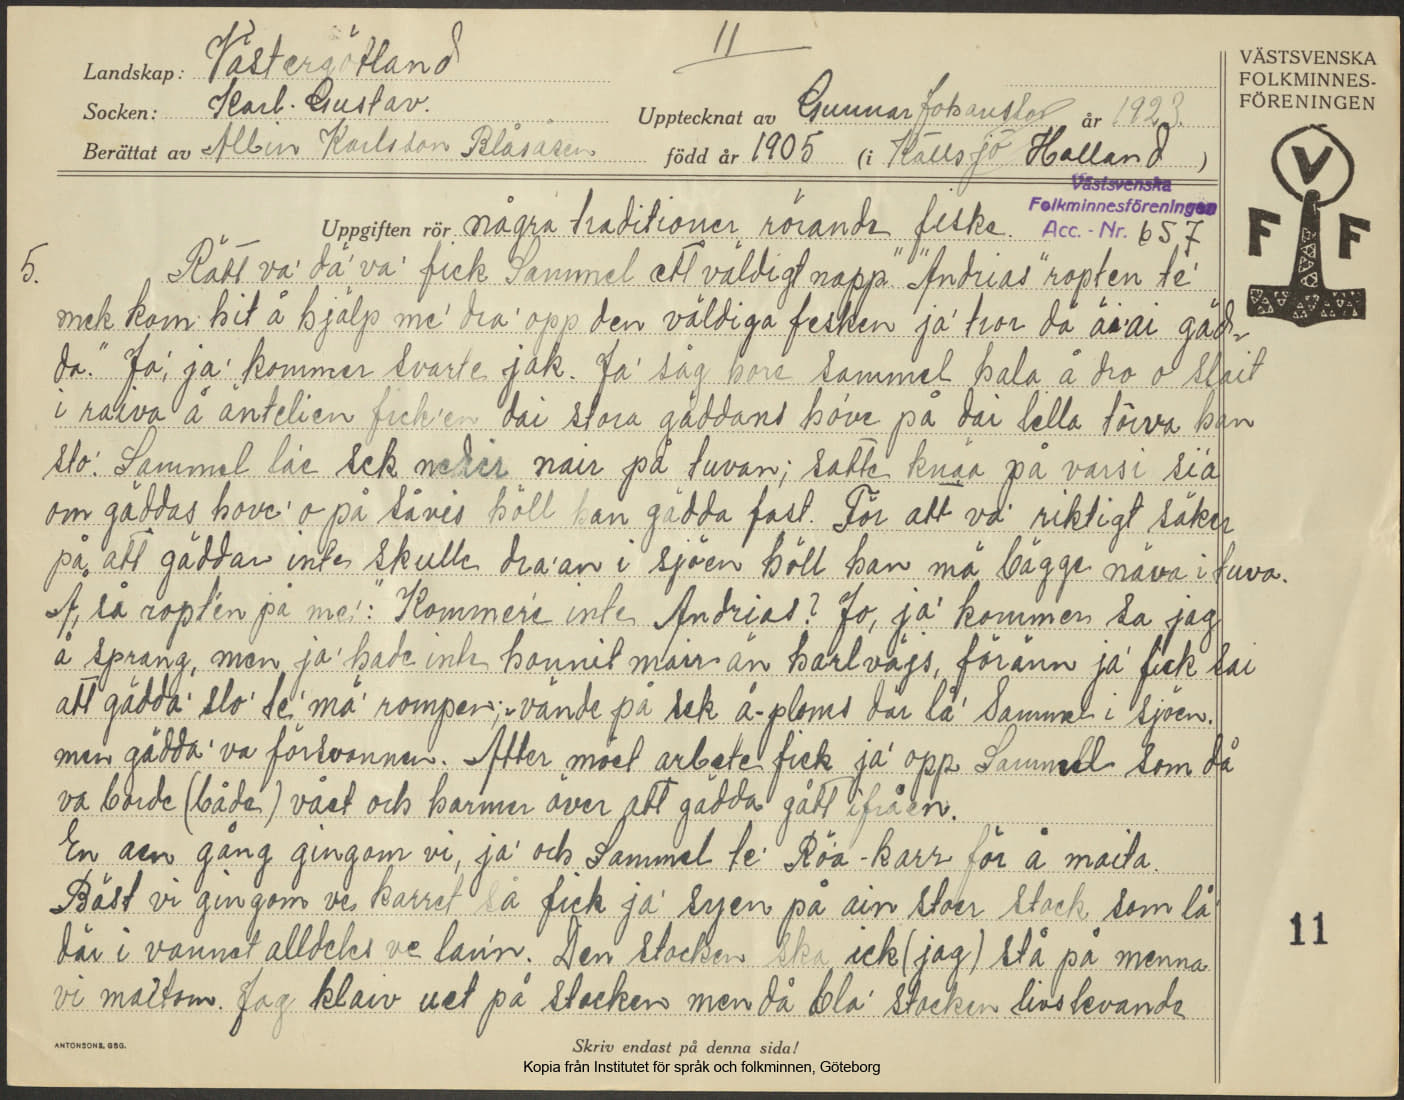 11
Landskap: Västergötland
Socken: Karl-Gustav.
Upptecknat av Gunnar Johansson år 1923.
Berättat av Albin Karlsson Blåsåsen född år 1905 (i Källsjö Halland)
VÄSTSVENSKA
FOLKMINNES-
FÖRENINGEN
V
F F
Västsvenska
Folkminnesföreningen
Acc. - Nr. 657
Uppgiften rör några traditioner rörande fiske.
5. Rätt va' dä' va' fick Sammel ett väldigt napp "Andrias" ropten te'
mek kom hit å hjälp me' dra' opp den väldiga fesken ja' tror dä ä'ai gäd-
da." Ja', ja' kommer svarte jak. Ja' såg hore Sammel hala å dro o slait
i raiva å äntelien fick'en dai stora gäddans höve på dai lella törva han
sto'. Sammel lae sek neder nair på tuvan; satte knäa på varsi sia
om gäddas hove' o på såvis höll han gädda fast. För att va' riktigt säker
på att gäddan inte skulle dra'an i sjöen höll han mä bägge näva i tuva.
Å, så ropt'en på me': "Kommer'e inte Andrias? Jo, ja' kommer sa jag
å sprang, men ja' hade inte hunnit mairr än harlväjs, föränn ja' fick sai
att gädda' slo' te' mä' rompen; vände på sek å-ploms där lå' Sammel i sjöen.
men gädda' va försvonnen. Atter möet arbete fick ja' opp Sammell som då
va borde (både) vået och harmer över att gädda gått ifråen.
En aen gång gingom vi, ja' och Sammel te' Röa-karr för å maita.
Bäst vi gingom ve karret så fick ja' syen på ain stoer stock som lå'
där i vannet alldeles ve lann. Den stocken ska ick (jag) stå på menna
vi maitom. Jag klaiv uet på stocken men då bla' stocken livslevande
ANTONSONS, GBG.
Skriv endast på denna sida!
11
Kopia från Institutet för språk och folkminnen, Göteborg